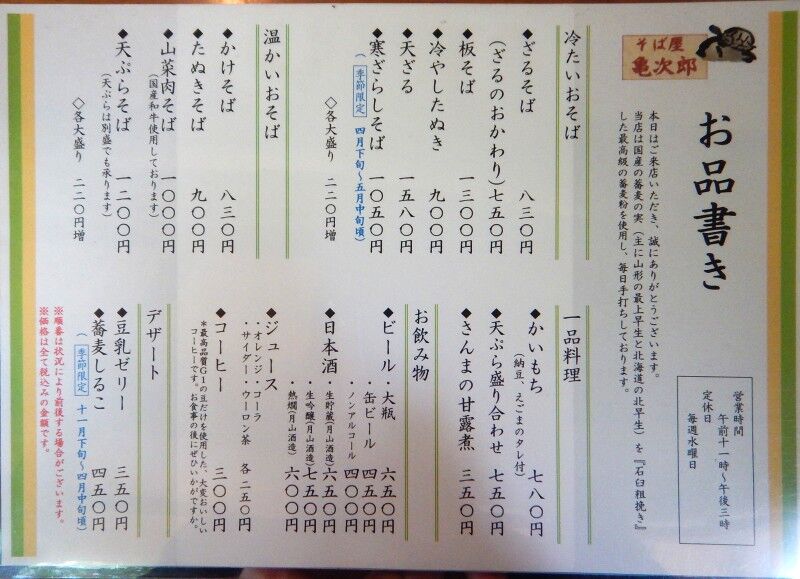 そば屋
亀次郎
お品書き
本日はご来店いただき、誠にありがとうございます。
当店は国産の蕎麦の実（主に山形の最上早生と北海道の北早生）を『石臼粗挽き』
した最高級の蕎麦粉を使用し、毎日手打ちしております。
営業時間
午前十一時～午後三時
定休日
毎週水曜日
冷たいおそば
◆ざるそば 八三〇円
（ざるのおかわり）七五〇円
◆板そば 一三〇〇円
◆冷やしたぬき 九〇〇円
◆天ざる 一五八〇円
◆寒ざらしそば 一〇五〇円
（季節限定 四月下旬～五月中旬頃）
◇各大盛り 二二〇円増
温かいおそば
◆かけそば 八三〇円
◆たぬきそば 九〇〇円
◆山菜肉そば 一〇〇〇円
（国産和牛使用しております）
◆天ぷらそば 一二〇〇円
（天ぷらは別盛でも承ります）
◇各大盛り 二二〇円増
一品料理
◆かいもち 七八〇円
（納豆、えごまのタレ付）
◆天ぷら盛り合わせ 七五〇円
◆さんまの甘露煮 三五〇円
お飲み物
◆ビール・大瓶 六五〇円
・缶ビール 四五〇円
・ノンアルコール 四〇〇円
◆日本酒 ・生貯蔵（月山酒造）六五〇円
・生吟醸（月山酒造）七五〇円
・熱燗（月山酒造） 六〇〇円
◆ジュース
・オレンジ・コーラ
・サイダー・ウーロン茶 各二五〇円
◆コーヒー 三〇〇円
＊最高品質Ｇ１の豆だけを使用した、大変おいしい
コーヒーです。お食事の後にぜひいかがですか。
デザート
◆豆乳ゼリー 三五〇円
◆蕎麦しるこ 四五〇円
（季節限定 十一月下旬～四月中旬頃）
※順番は状況により前後する場合がございます。
※価格は全て税込みの金額です。